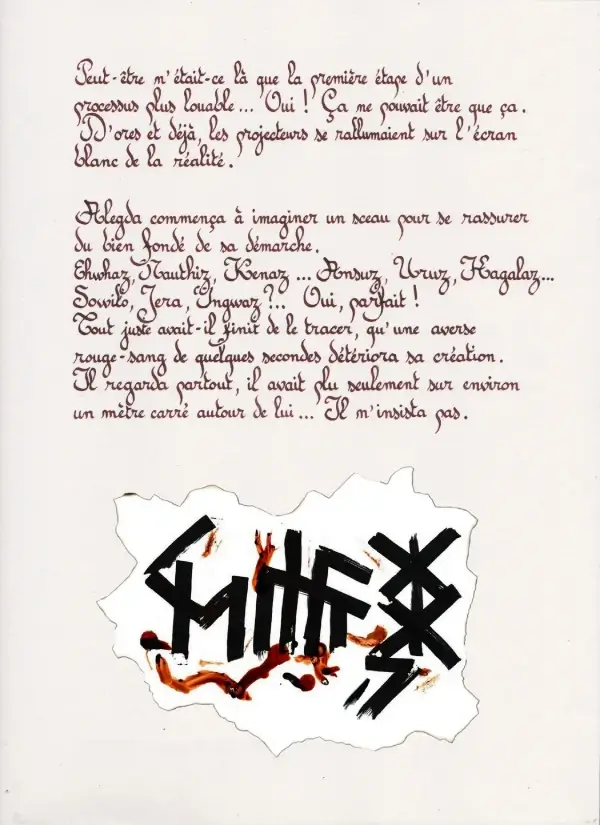 Peut-être n'était-ce là que la première étape d'un
processus plus louable... Oui ! Ça ne pouvait être que ça.
D'ores et déjà, les projecteurs se rallumaient sur l'écran
blanc de la réalité.
Alegda commença à imaginer un sceau pour se rassurer
du bien fondé de sa démarche.
Ehwhaz, Nauthiz, Kenaz ... Ansuz, Uruz, Hagalaz...
Sowilo, Jera, Ingwaz ?.. Oui, parfait !
Tout juste avait-il finit de le tracer, qu'une averse
rouge-sang de quelques secondes détériora sa création.
Il regarda partout, il avait plu seulement sur environ
un mètre carré autour de lui... Il n'insista pas.